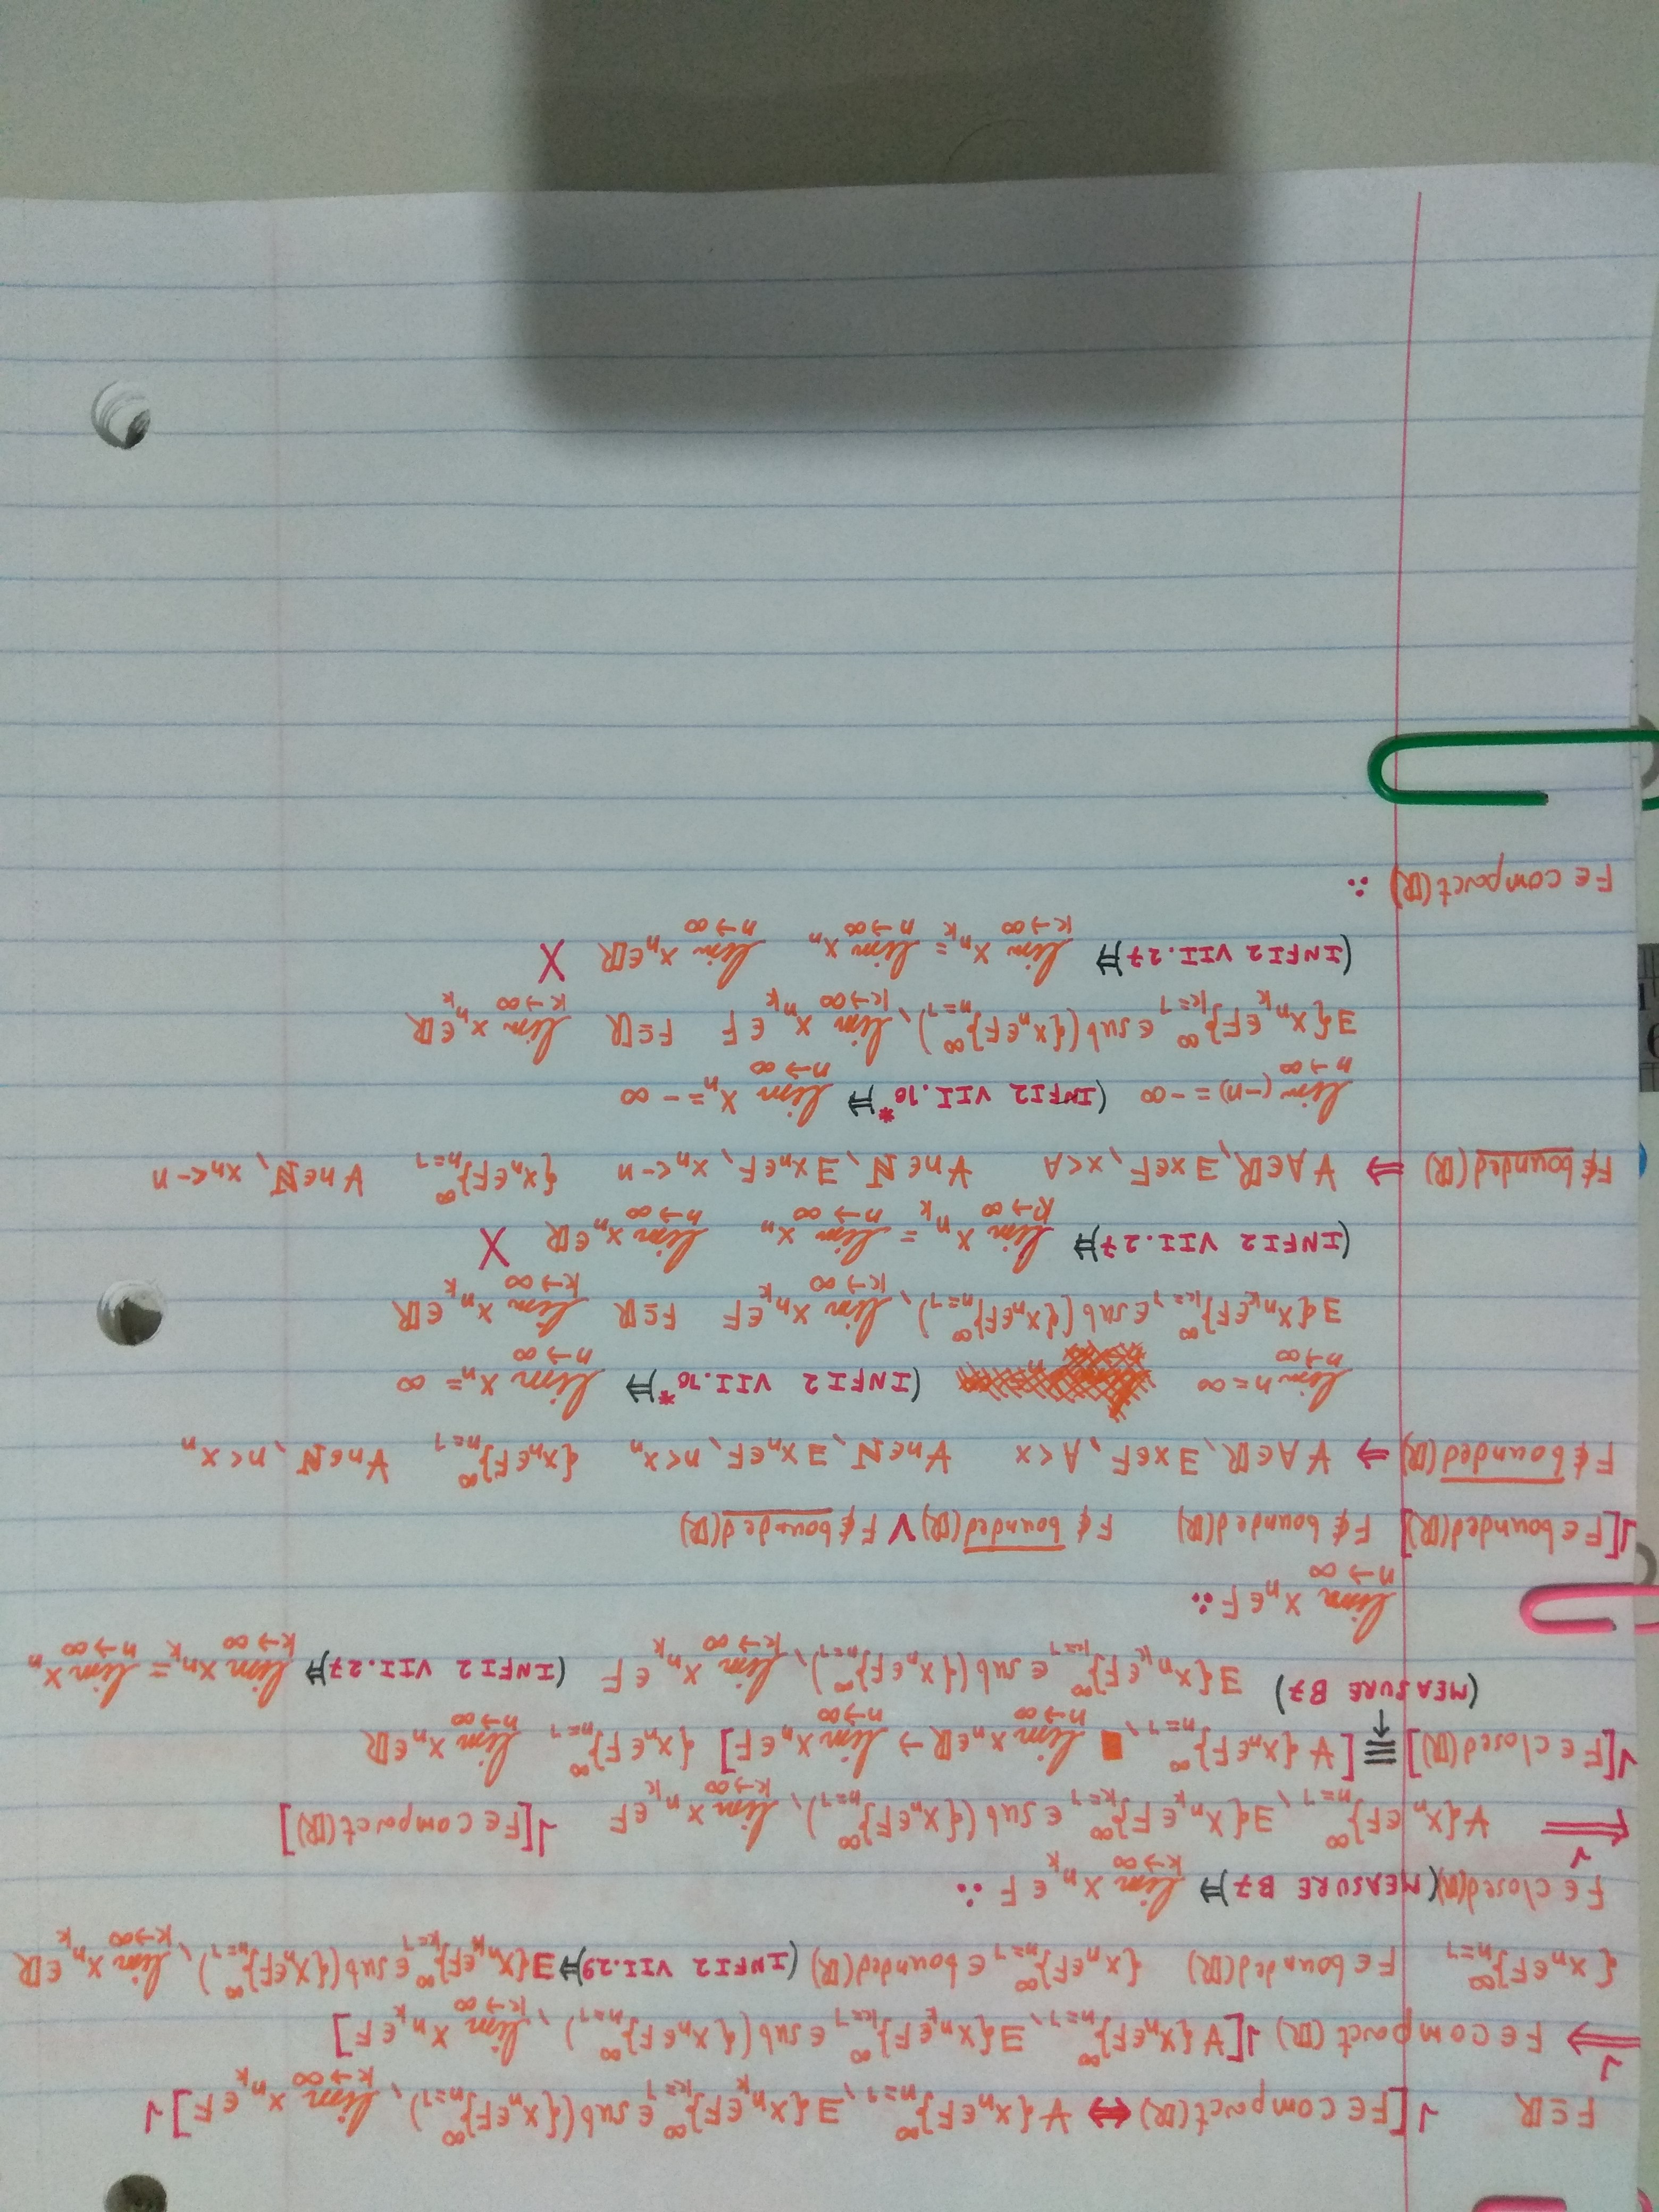 F⊆ℝ 1[F∈compact(ℝ) ⇔ ∀{xₙ∈F}ₙ₌₁^∞, ∃{xₙₖ∈F}ₖ₌₁^∞ ∈ sub({xₙ∈F}ₙ₌₁^∞), lim_{k→∞} xₙₖ ∈F]1
1⟹ F∈compact(ℝ) 1[∀{xₙ∈F}ₙ₌₁^∞, ∃{xₙₖ∈F}ₖ₌₁^∞ ∈ sub({xₙ∈F}ₙ₌₁^∞), lim_{k→∞} xₙₖ ∈F]
{xₙ∈F}ₙ₌₁^∞ F∈bounded(ℝ) {xₙ∈F}ₙ₌₁^∞ ∈ bounded(ℝ) (INFI2 VII.29)⇒ ∃{xₙₖ∈F}ₖ₌₁^∞ ∈ sub({xₙ∈F}ₙ₌₁^∞), lim_{k→∞} xₙₖ ∈ℝ
F∈closed(ℝ) (MEASURE B7)⇒ lim_{k→∞} xₙₖ ∈ F ∴
1⟸ ∀{xₙ∈F}ₙ₌₁^∞, ∃{xₙₖ∈F}ₖ₌₁^∞ ∈ sub({xₙ∈F}ₙ₌₁^∞), lim_{k→∞} xₙₖ ∈F 1[F∈compact(ℝ)]
1[F∈closed(ℝ)] ≡ [∀{xₙ∈F}ₙ₌₁^∞, lim_{n→∞} xₙ∈ℝ → lim_{n→∞} xₙ∈F] {xₙ∈F}ₙ₌₁^∞ lim_{n→∞} xₙ∈ℝ
(MEASURE B7) ∃{xₙₖ∈F}ₖ₌₁^∞ ∈ sub({xₙ∈F}ₙ₌₁^∞), lim_{k→∞} xₙₖ ∈F (INFI2 VII.27)⇒ lim_{k→∞} xₙₖ = lim_{n→∞} xₙ
lim_{n→∞} xₙ∈F ∴
1[F∈bounded(ℝ)] F∉bounded(ℝ) F∉b̅o̅u̅n̅d̅e̅d̅(ℝ) ∨ F∉b̲o̲u̲n̲d̲e̲d̲(ℝ)
F∉b̅o̅u̅n̅d̅e̅d̅(ℝ) ⇒ ∀A∈ℝ, ∃x∈F, A<x ∀n∈ℕ, ∃xₙ∈F, n<xₙ {xₙ∈F}ₙ₌₁^∞ ∀n∈ℕ, n<xₙ
lim_{n→∞} n=∞ (INFI2 VII.10*)⇒ lim_{n→∞} xₙ = ∞
∃{xₙₖ∈F}ₖ₌₁^∞ ∈ sub({xₙ∈F}ₙ₌₁^∞), lim_{k→∞} xₙₖ ∈F F⊆ℝ lim_{k→∞} xₙₖ ∈ℝ
(INFI2 VII.27)⇒ lim_{k→∞} xₙₖ = lim_{n→∞} xₙ lim_{n→∞} xₙ∈ℝ X
F∉b̲o̲u̲n̲d̲e̲d̲(ℝ) ⇒ ∀A∈ℝ, ∃x∈F, x<A ∀n∈ℕ, ∃xₙ∈F, xₙ<-n {xₙ∈F}ₙ₌₁^∞ ∀n∈ℕ, xₙ<-n
lim_{n→∞} (-n) = -∞ (INFI2 VII.10*)⇒ lim_{n→∞} xₙ = -∞
∃{xₙₖ∈F}ₖ₌₁^∞ ∈ sub({xₙ∈F}ₙ₌₁^∞), lim_{k→∞} xₙₖ ∈ F F⊆ℝ lim_{k→∞} xₙₖ ∈ℝ
(INFI2 VII.27)⇒ lim_{k→∞} xₙₖ = lim_{n→∞} xₙ lim_{n→∞} xₙ∈ℝ X
F∈compact(ℝ) ∴